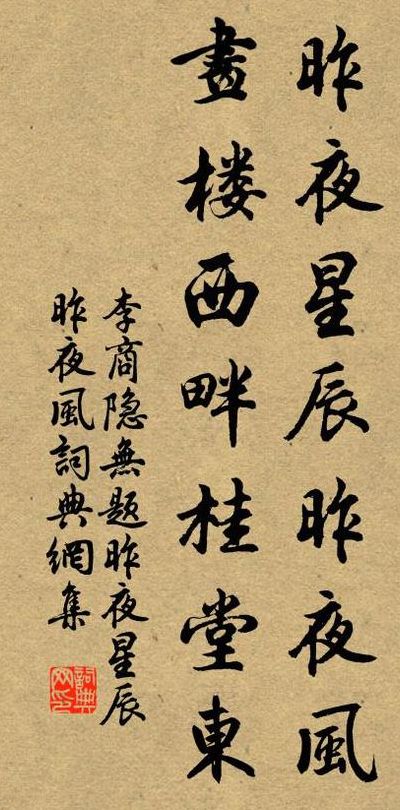 昨夜星辰昨夜風
畫楼西畔桂堂東
李商隐無題昨夜星辰
昨夜風詞典網集
詞典
网印